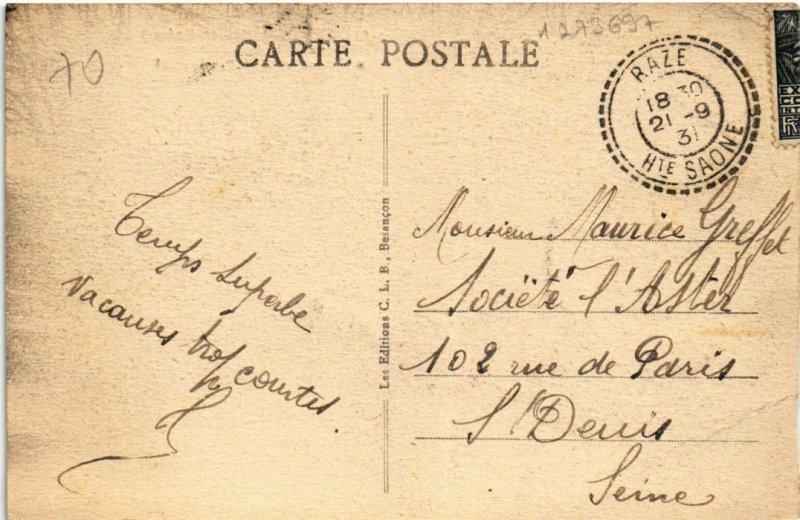 1273697
70
CARTE POSTALE
RAZE
18 30
21 -9
31
HTE SAONE
EX
Temps superbe
Vacances trop courtes.
Les Editions C. L. B., Besançon
Monsieur Maurice Greffet
Société l'Aster
102 rue de Paris
St Denis
Seine